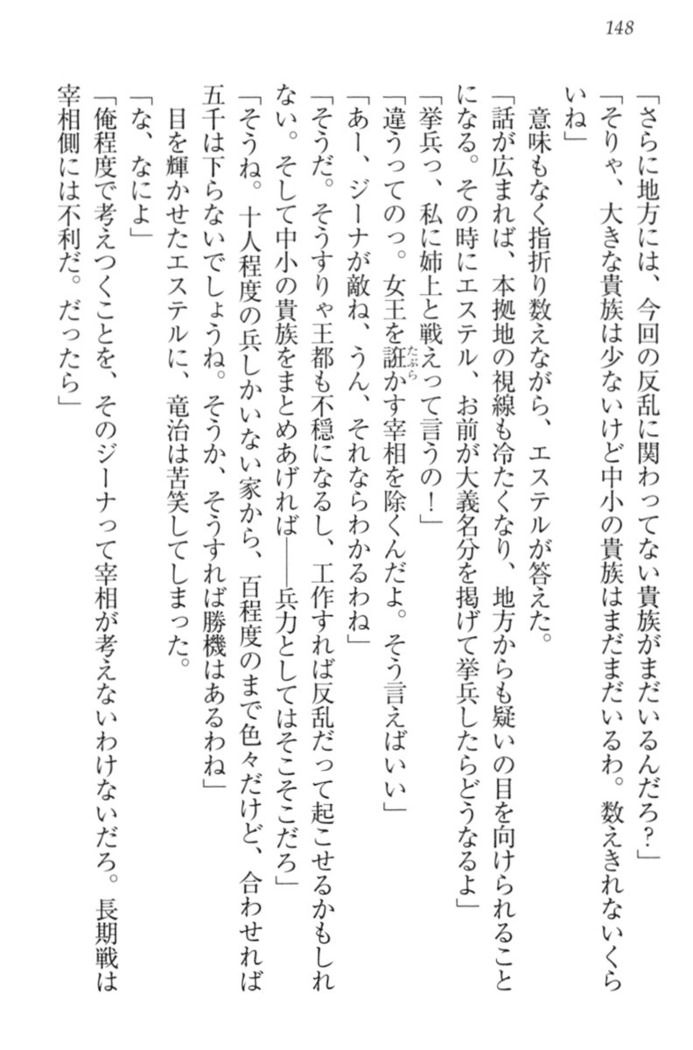 148
「さらに地方には、今回の反乱に関わってない貴族がまだいるんだろ？」
「そりゃ、大きな貴族は少ないけど中小の貴族はまだまだいるわ。数えきれないくら
いね」
　意味もなく指折り数えながら、エステルが答えた。
「話が広まれば、本拠地の視線も冷たくなり、地方からも疑いの目を向けられること
になる。その時にエステル、お前が大義名分を掲げて挙兵したらどうなるよ」
「挙兵っ、私に姉上と戦えって言うの！」
「違うってのっ。女王を誑かす宰相を除くんだよ。そう言えばいい」
たぶら
「あー、ジーナが敵ね、うん、それならわかるわね」
「そうだ。そうすりゃ王都も不穏になるし、工作すれば反乱だって起こせるかもしれ
ない。そして中小の貴族をまとめあげれば――兵力としてはそこそこだろ」
「そうね。十人程度の兵しかいない家から、百程度のまで色々だけど、合わせれば
五千は下らないでしょうね。そうか、そうすれば勝機はあるわね」
　目を輝かせたエステルに、竜治は苦笑してしまった。
「な、なによ」
「俺程度で考えつくことを、そのジーナって宰相が考えないわけないだろ。長期戦は
宰相側には不利だ。だったら」